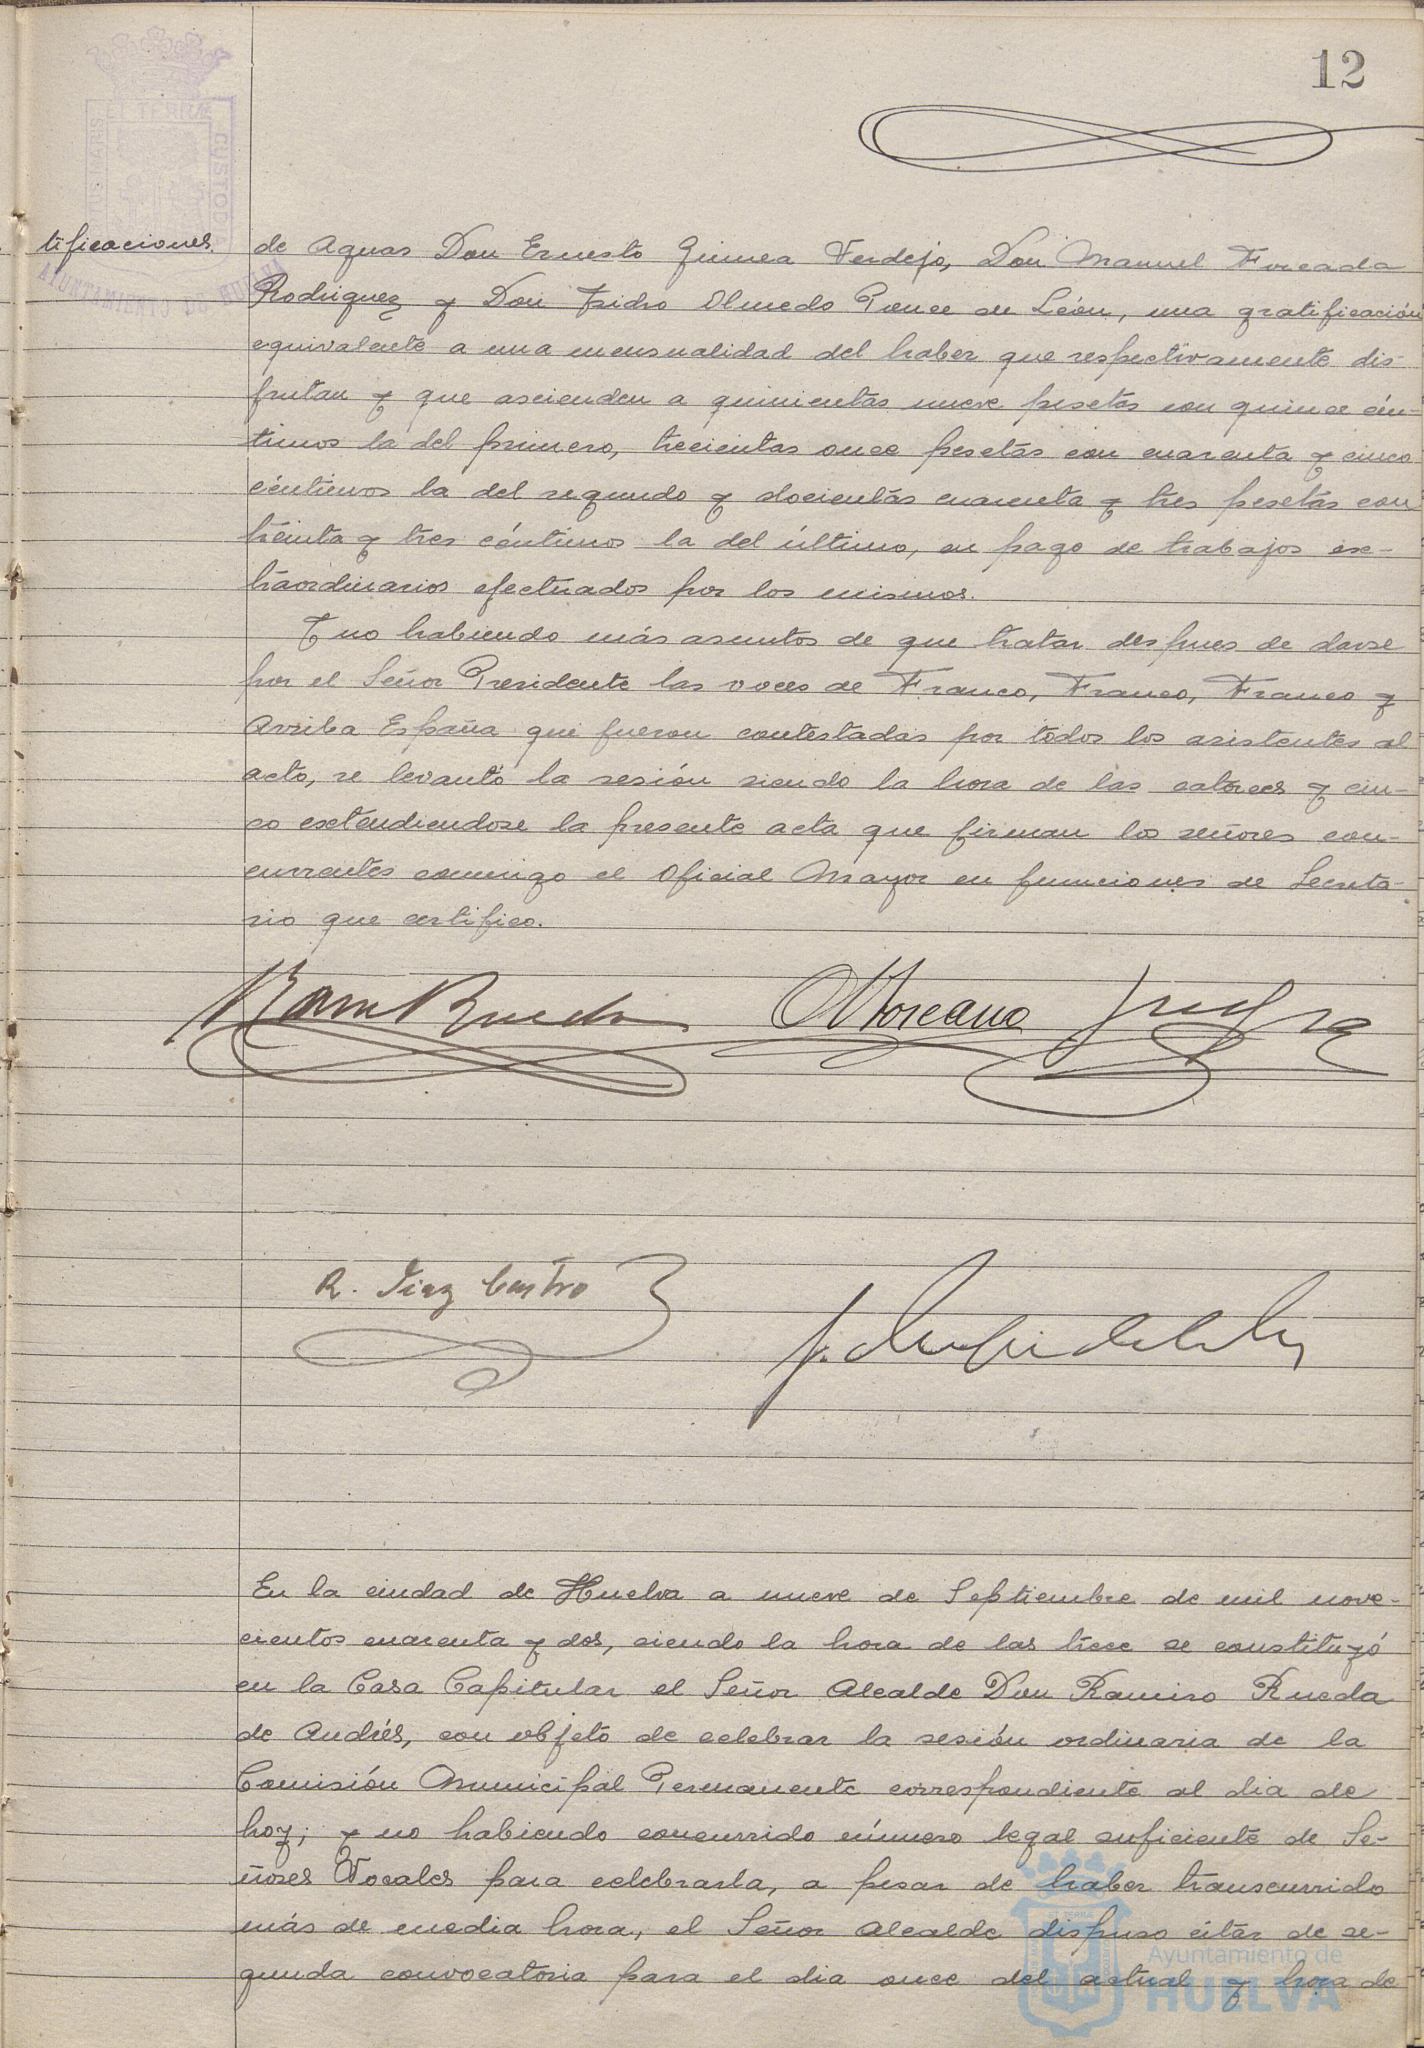 12
tificaciones. de Aguas Don Ernesto Guinea Verdejo, Don Manuel Forcada
Rodriguez y Don Isidro Olmedo Ponce de León, una gratificación
equivalente a una mensualidad del haber que respectivamente dis-
frutan y que ascienden a quinientas nueve pesetas con quince cén-
timos la del primero, trecientas once pesetas con cuarenta y cinco
céntimos la del segundo y docientas cuarenta y tres pesetas con
treinta y tres céntimos la del último, en pago de trabajos ex-
traordinarios efectuados por los mismos.
Y no habiendo más asuntos de que tratar despues de darse
por el Señor Presidente las voces de Franco, Franco, Franco y
Arriba España que fueron contestadas por todos los asistentes al
acto, se levantó la sesión siendo la hora de las catorces y cin-
co extendiendose la presente acta que firman los señores con-
currentes conmigo el Oficial Mayor en funciones de Secreta-
rio que certifico.
R. Diaz Castro
En la ciudad de Huelva a nueve de Septiembre de mil nove-
cientos cuarenta y dos, siendo la hora de las trece se constituyó
en la Casa Capitular el Señor Alcalde Don Ramiro Rueda
de Andrés, con objeto de celebrar la sesión ordinaria de la
Comisión Municipal Permanente correspondiente al dia de
hoy; y no habiendo concurrido número legal suficiente de Se-
ñores Vocales para celebrarla, a pesar de haber transcurrido
más de media hora, el Señor Alcalde dispuso citar de se-
gunda convocatoria para el dia once del actual y hora de
ET TERRÆ
CUSTOD
AYUNTAMIENTO DE HUELVA
Ayuntamiento de
HUELVA